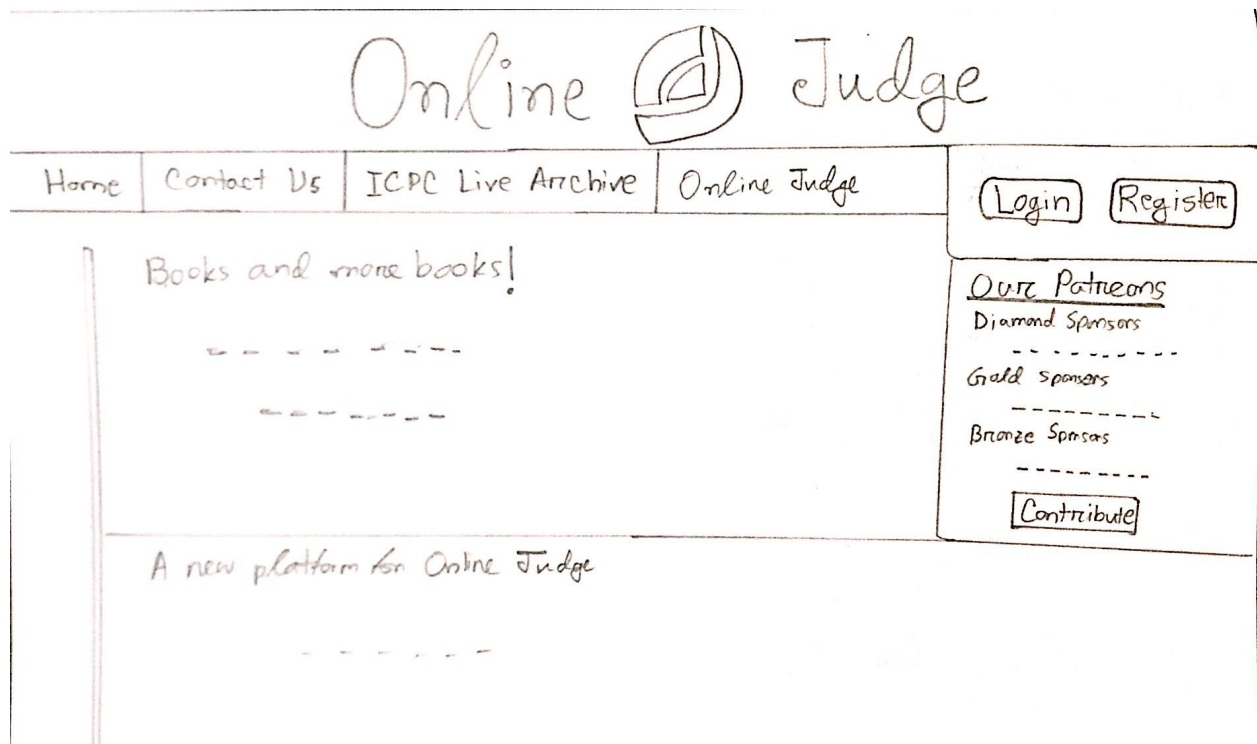 Online Judge
Home
Contact Us
ICPC Live Archive
Online Judge
Login
Register
Books and more books!
Our Patreons
Diamond Sponsors
Gold Sponsors
Bronze Sponsors
Contribute
A new platform for Online Judge